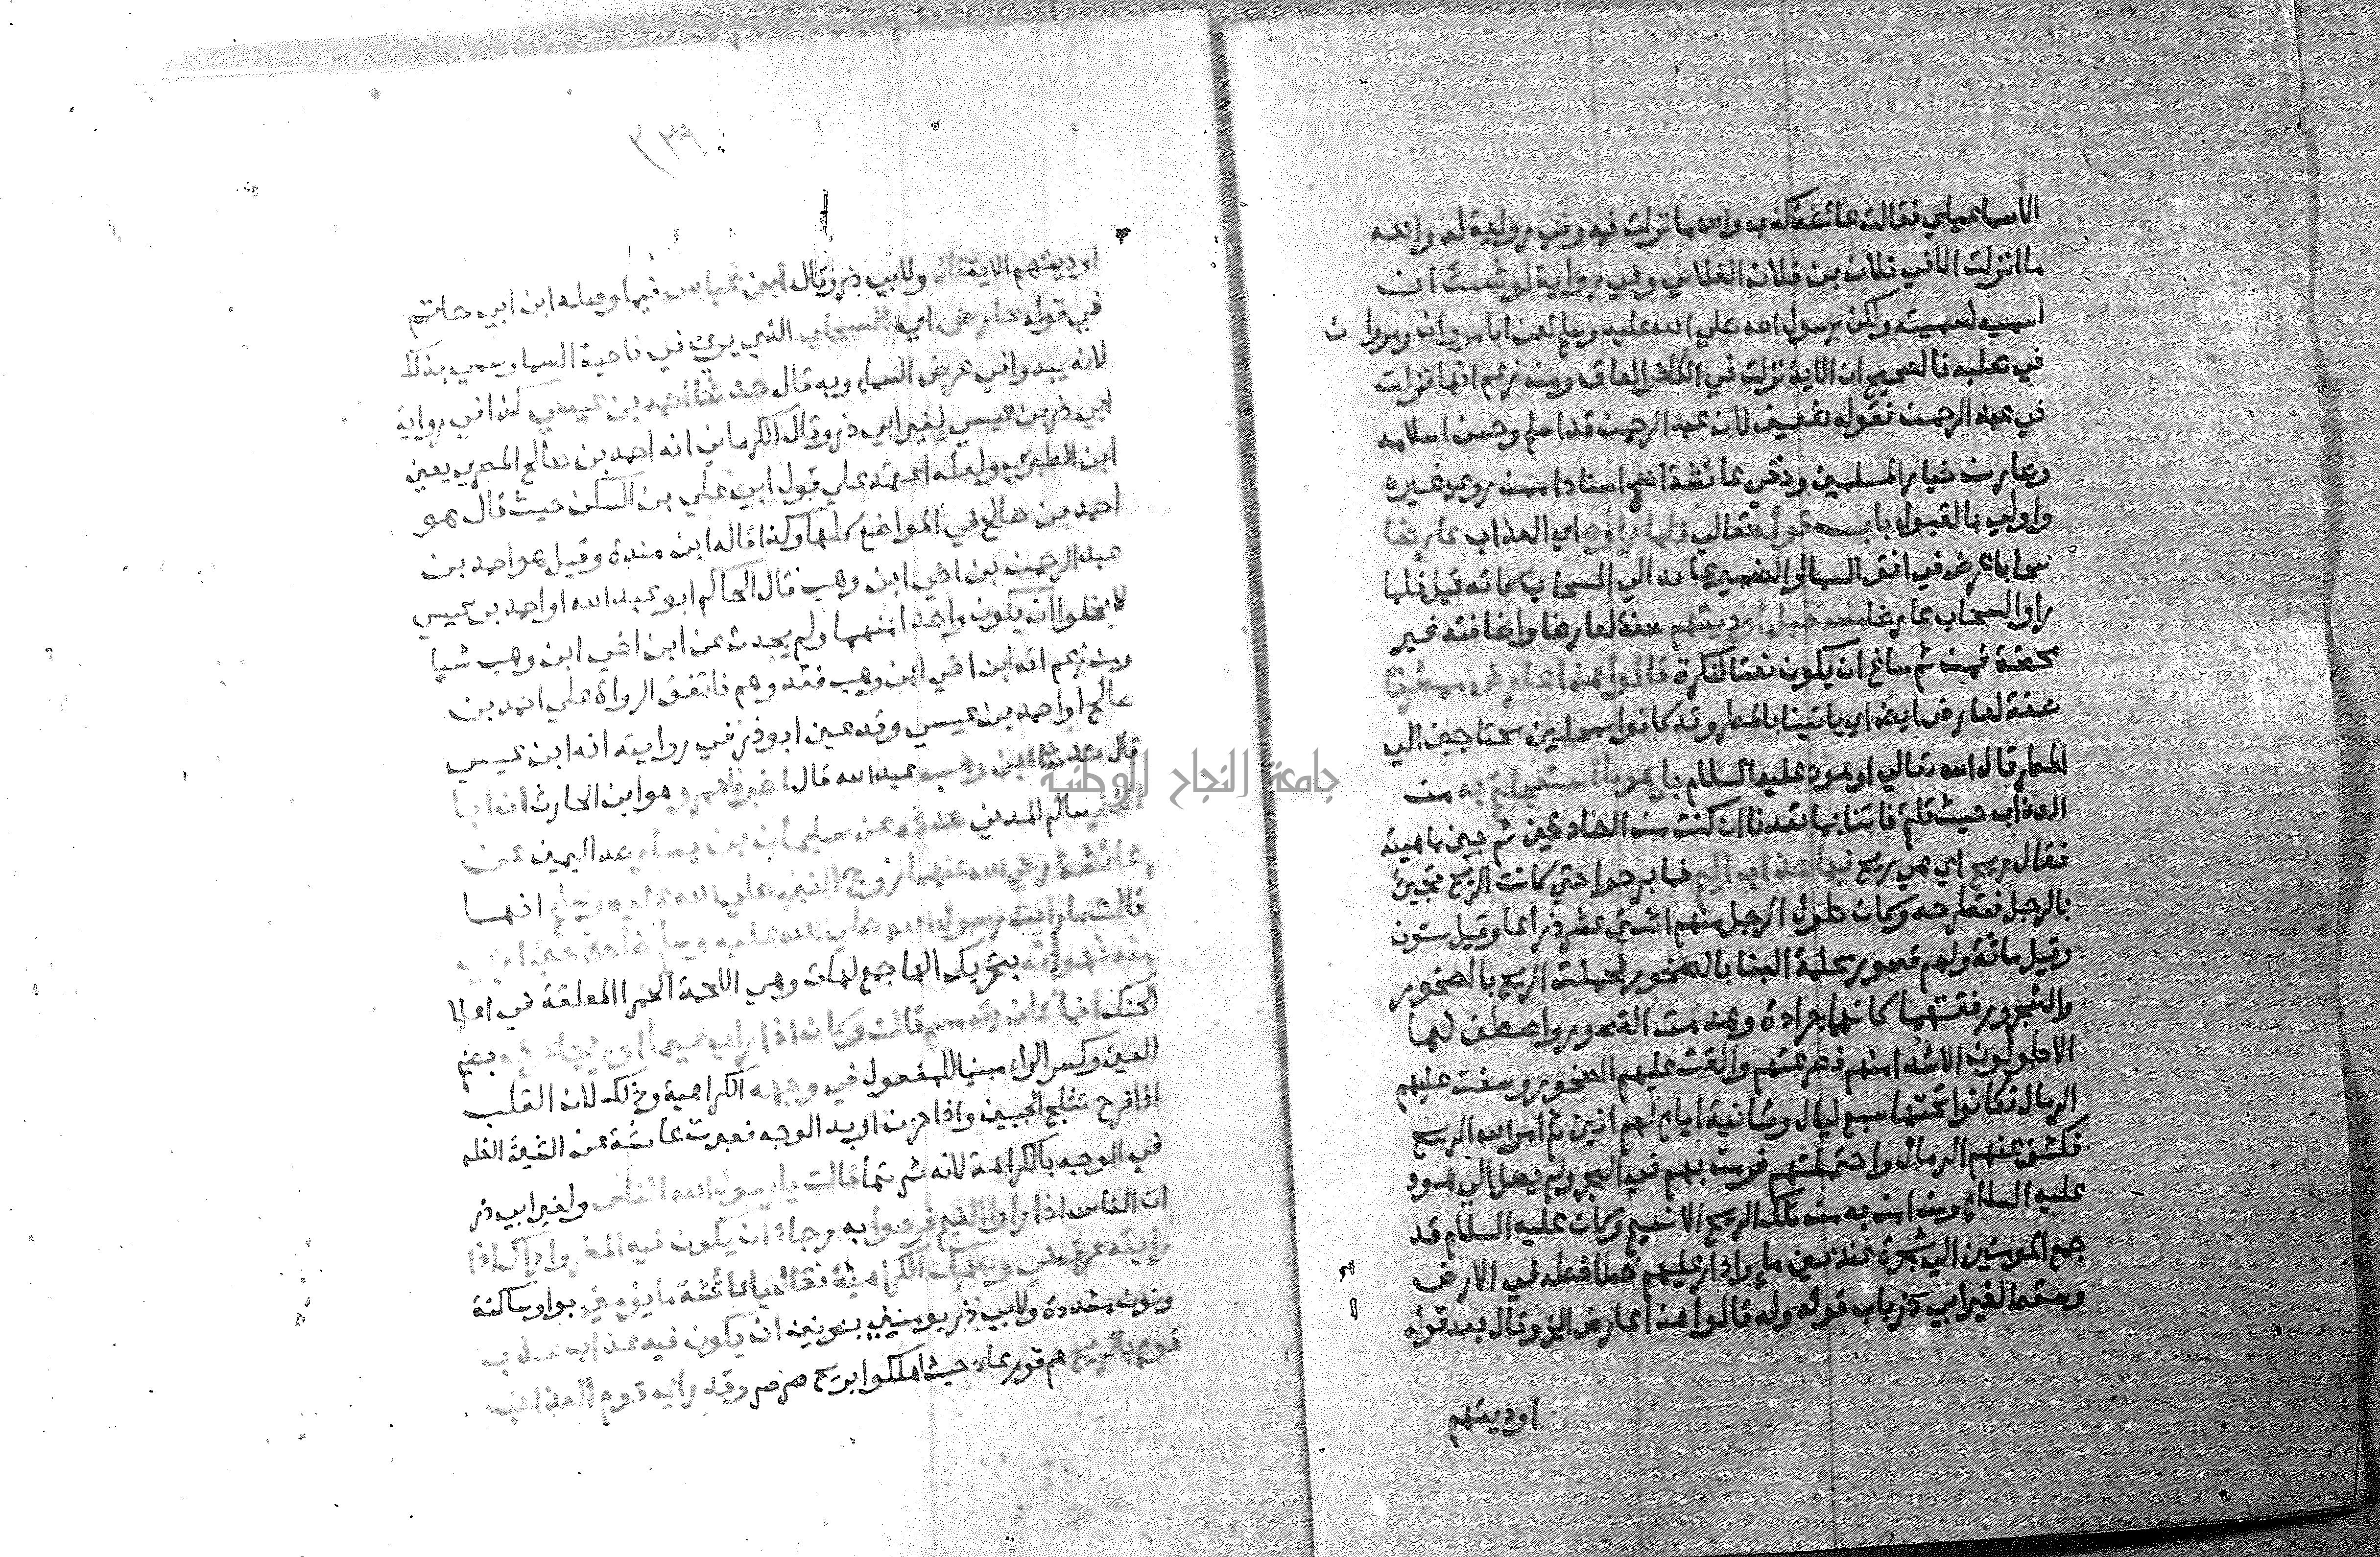 الاسماعيلي فقالت عائشة كذب والله ما نزلت فيه وفي رواية له والله
ما انزلت الا في فلان بن فلان الفلاني وفي رواية لو شئت ان
اسميه لسميته ولكن رسول الله صلي الله عليه وسلم لعن ابا مروان ومروان
في صلبه فالصحيح ان الاية نزلت في الكافر العاق ومن زعم انها نزلت
في عبد الرحمن فقوله ضعيف لان عبد الرحمن قد اسلم وحسن اسلامه
وصار من خيار المسلمين ونفي عائشة اصح اسنادا ممن روي غيره
واولي بالقبول باب قوله تعالي فلما راوه اي العذاب عارضا
سحابا عرض في افق السما والضمير عائد الي السحاب كانه قيل فلما
راوا السحاب عارضا مستقبل اوديتهم صفة لعارضا واضافته غير
محضة فمن ثم ساغ ان يكون نعتا لنكرة قالوا هذا عارض ممطرنا
صفة لعارض ايضا اي ياتينا بالمطر وقد كانوا ممحلين محتاجين الي
المطر قال الله تعالي او هود عليه السلام بل هو ما استعجلتم به من
العذاب حيث قلتم فاتنا بما تعدنا ان كنت من الصادقين ثم بين ماهيته
فقال ريح اي هي ريح فيها عذاب اليم فما برحوا حتي كانت الريح تجيئ
بالرجل فتطرحه وكان طول الرجل منهم اثني عشر ذراعا وقيل ستون
وقيل مائة ولهم قصور محكمة البنا بالصخور فحملت الريح بالصخور
والشجر ورفعتهما كانهما جرادة وهدمت القصور واصطف لها
الاطولون الاشد منهم فصرعتهم والقت عليهم الصخور وسفت عليهم
الرمال فكانوا تحتها سبع ليال وثمانية ايام لهم انين ثم امر الله الريح
فكشف عنهم الرمال واحتملتهم فرمت بهم في البحر ولم يصل الي هود
عليه السلام ومن امن به من تلك الريح الا نسيم وكان عليه السلام قد
جمع المومنين الي شجرة عند عين ما وادار عليهم خطا خطه في الارض
وسقط لغير ابي ذر باب قوله وله قالوا هذا عارض الخ وقال بعد قوله
اوديتهم
٣٣٩
اوديتهم الاية قال ولابي ذر وقال ابن عباس فيما وصله ابن ابي حاتم
في قوله عارض اي السحاب الذي يري في ناحية السما وسمي بذلك
لانه يبدو في عرض السماء وبه قال حدثنا احمد بن عيسي كذا في رواية
ابي ذر بن عيسي لغير ابي ذر وقال الكرماني انه احمد بن صالح المصري يعني
ابن الطبري ولعله اعتمد علي قول ابي علي بن السكن حيث قال هو
احمد بن صالح في المواضع كلها وكذا قاله ابن مندة وقيل هو احمد بن
عبد الرحمن بن اخي ابن وهب قال الحاكم ابو عبد الله او احمد بن عيسي
لا يخلوا ان يكون واحدا منهما ولم يحدث عن ابن اخي ابن وهب شيا
ومن زعم انه ابن اخي ابن وهب فقد وهم فاتفق الرواة علي احمد بن
صالح او احمد بن عيسي وقد عين ابو ذر في روايته انه ابن عيسي
قال حدثنا ابن وهب عبد الله قال اخبرنا عمرو هو ابن الحارث ان ابا
النضر سالم المدني حدثه عن سليمان بن يسار ضد اليمين عن
عائشة رضي الله عنها زوج النبي صلي الله عليه وسلم انها
قالت ما رايت رسول الله صلي الله عليه وسلم ضاحكا حتي اري
منه لهواته بتحريك الها جمع لهات وهي اللحمة الحمرا المعلقة في اعلا
الحنك انما كان يتبسم قالت وكان اذا راي غيما او ريحا عرف بضم
العين وكسر الراء مبنيا للمفعول في وجهه الكراهية وذلك لان القلب
اذا فرح تبلج الجبين واذا حزن اربد الوجه فعبرت عائشة عن الشيئ الظاهر
في الوجه بالكراهة لانه ثمرتها قالت يا رسول الله الناس ولغير ابي ذر
ان الناس اذا راوا الغيم فرحوا به رجاة ان يكون فيه المطر واراك اذا
رايته عرف في وجهك الكراهية فقال يا عائشة ما يؤمني بواو ساكنة
ونون مشددة ولابي ذر يومنني بنونين ان يكون فيه عذاب عذب
قوم بالريح هم قوم عاد حيث اهلكوا بريح صرصر وقد راي قوم العذاب
جامعة النجاح الوطنية